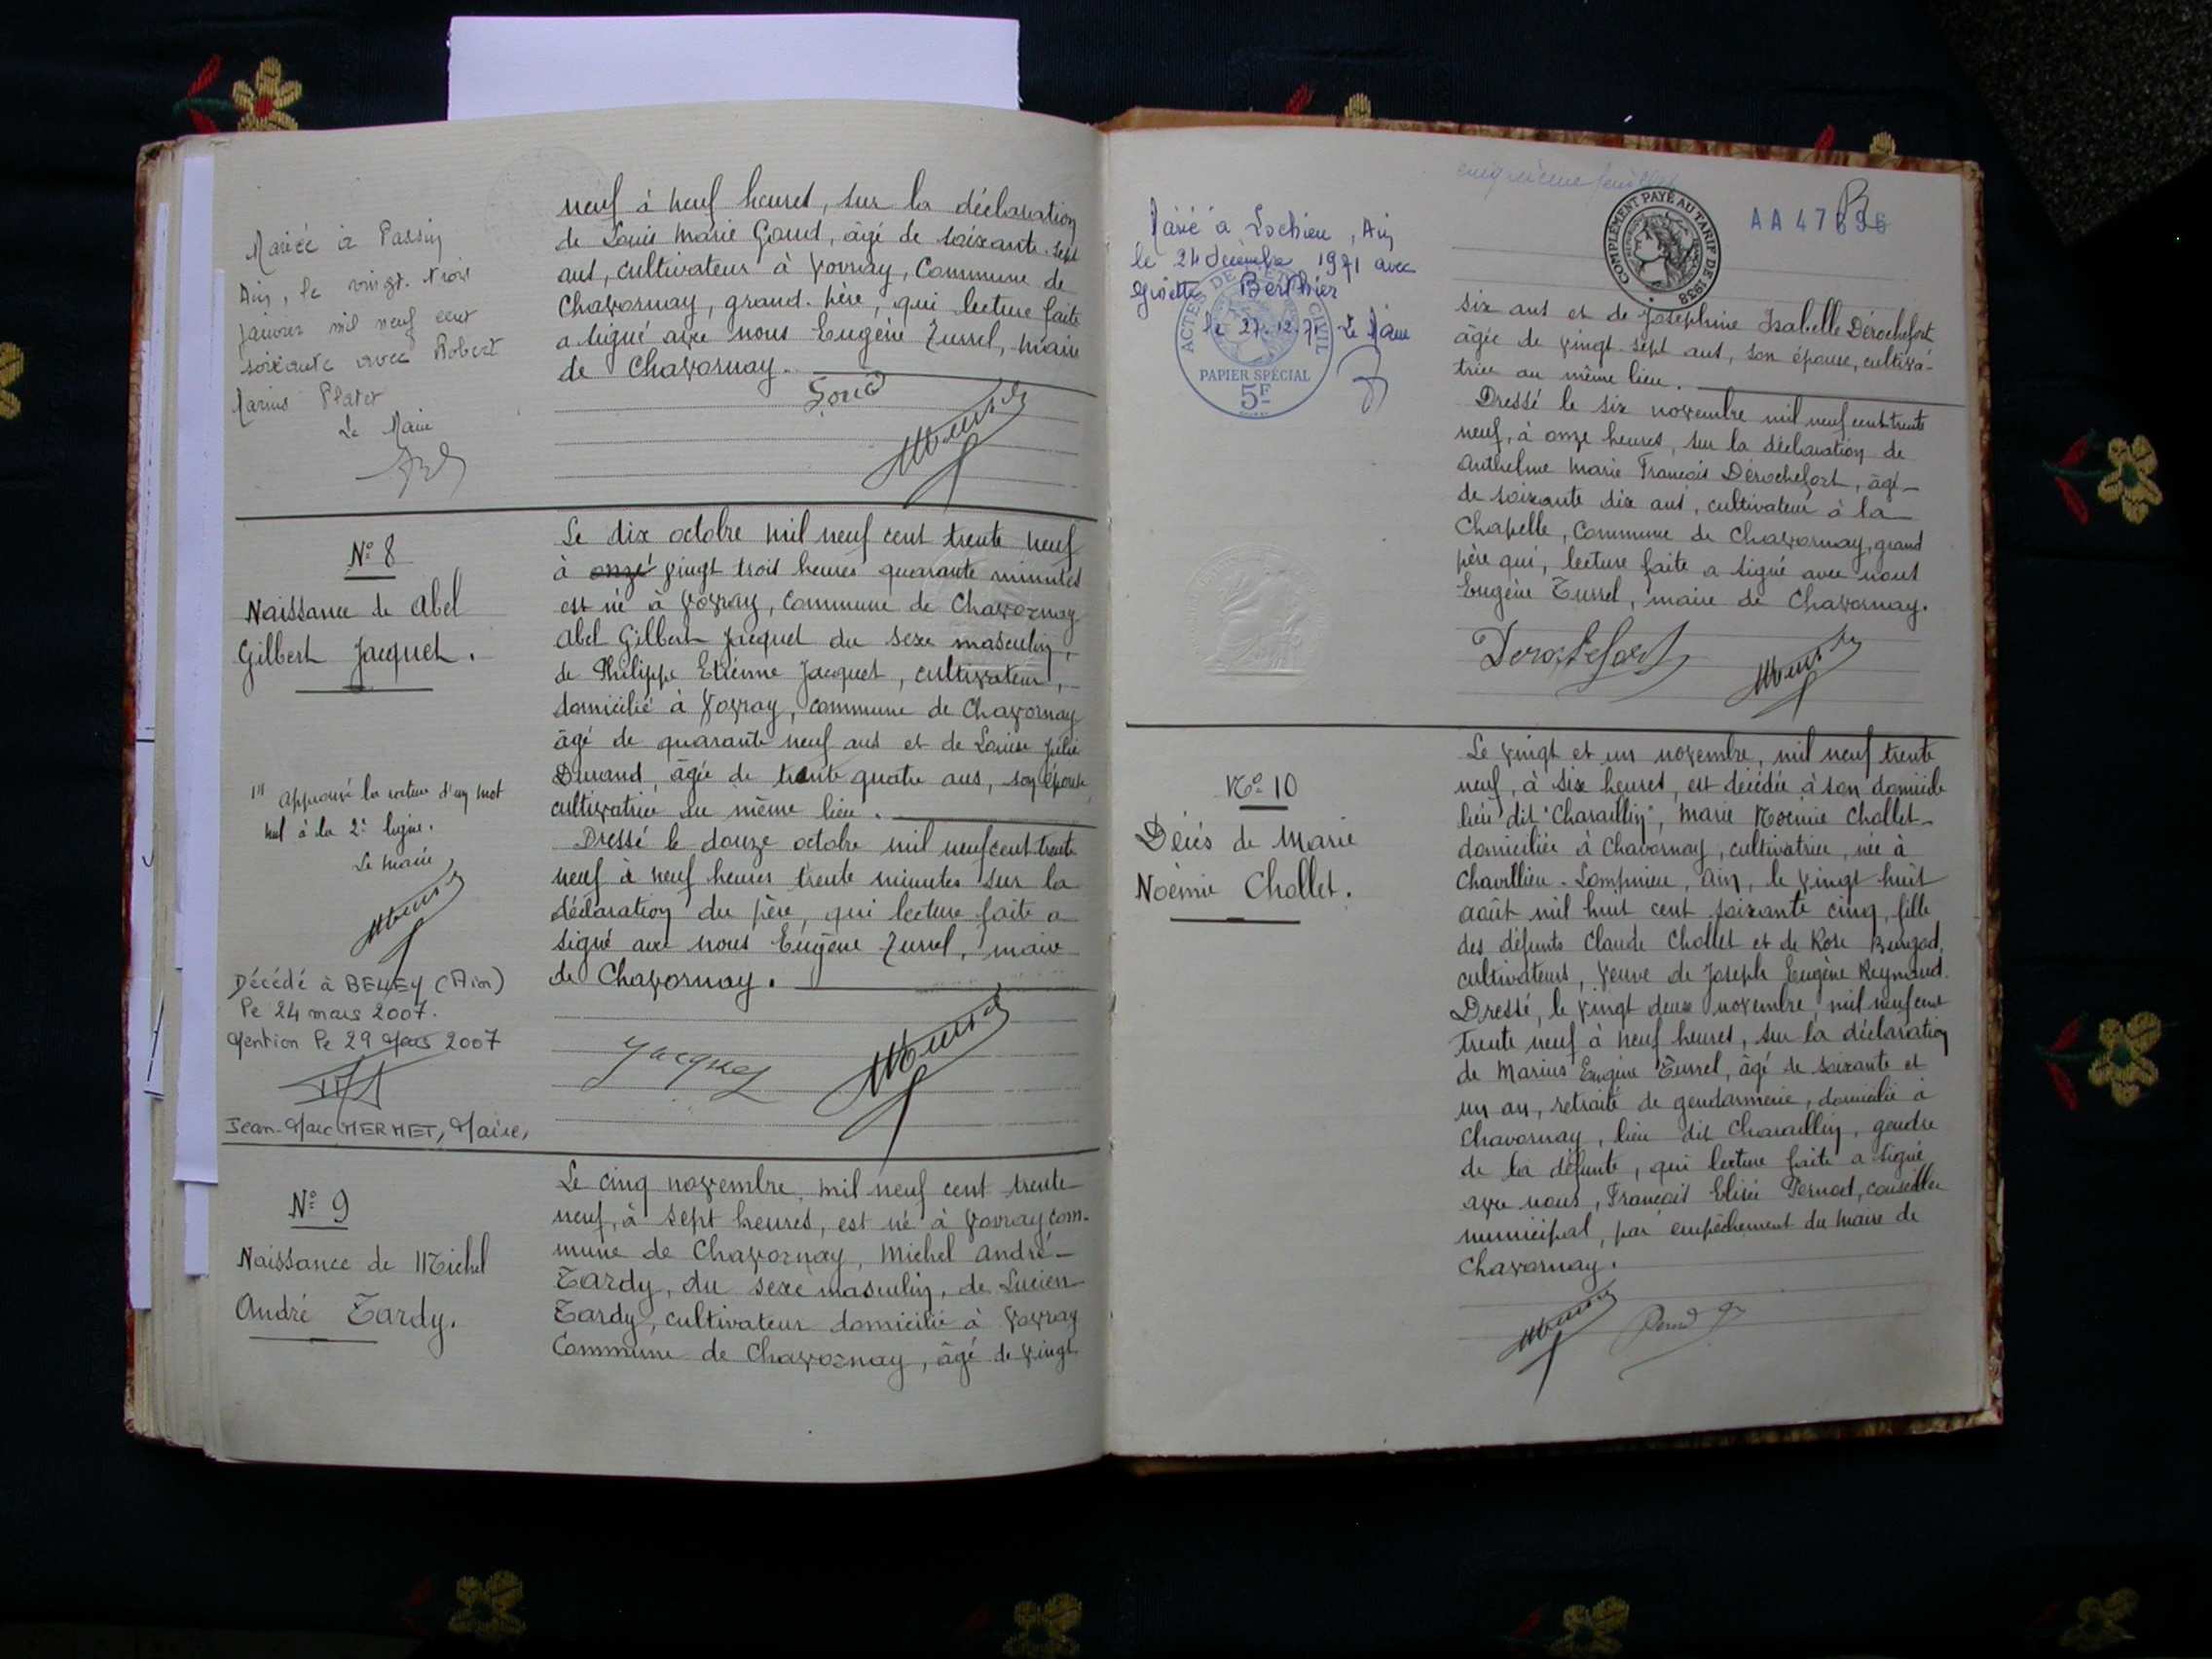 neuf à neuf heures, sur la déclaration
de Louis Marie Goud, âgé de soixante-sept
ans, cultivateur à Vovray, Commune de
Chavornay, grand-père, qui lecture faite
a signé avec nous Eugène Turrel, maire
de Chavornay.
Mariée à Passin
Ain, le vingt-trois
janvier mil neuf cent
soixante avec Robert
Marius Platet
Le Maire
Goud
N° 8
Naissance de Abel
Gilbert Jacquet.
Le dix octobre mil neuf cent trente neuf
à onze vingt trois heures quarante minutes
est né à Vovray, Commune de Chavornay
Abel Gilbert Jacquet du sexe masculin,
de Philippe Etienne Jacquet, cultivateur,
domicilié à Vovray, commune de Chavornay
âgé de quarante neuf ans et de Louise Julie
Durand, âgée de trente quatre ans, son épouse,
cultivatrice au même lieu.
Dressé le douze octobre mil neuf cent trente
neuf à neuf heures trente minutes sur la
déclaration du père, qui lecture faite a
signé avec nous Eugène Turrel, maire
de Chavornay.
Jacquet
approuvé la rature d'un mot
nul à la 2e ligne.
Le maire
Décédé à BELLEY (Ain)
le 24 mars 2007.
Mention le 29 Mars 2007
Jean-Marc MERMET, Maire,
N° 9
Naissance de Michel
André Tardy.
Le cinq novembre, mil neuf cent trente
neuf, à sept heures, est né à Vovray, com-
mune de Chavornay, Michel André
Tardy, du sexe masculin, de Lucien
Tardy, cultivateur domicilié à Vovray
Commune de Chavornay, âgé de vingt
cinquième feuillet
COMPLÉMENT PAYÉ AU TARIF DE 1938
AA 47
Marié à Lochieu, Ain
le 24 décembre 1971 avec
Ginette Berthier
le 27.12.71 Le Maire
ACTES DE L'ÉTAT CIVIL
PAPIER SPÉCIAL
5F
six ans et de Joséphine Isabelle Dérochefort
âgée de vingt-sept ans, son épouse, cultiva-
trice au même lieu.
Dressé le six novembre mil neuf cent trente
neuf, à onze heures, sur la déclaration de
Anthelme Marie François Dérochefort, âgé
de soixante dix ans, cultivateur à la
Chapelle, Commune de Chavornay, grand
père qui, lecture faite a signé avec nous
Eugène Turrel, maire de Chavornay.
Derochefort
N° 10
Décès de Marie
Noémie Chollet.
Le vingt et un novembre, mil neuf trente
neuf, à six heures, est décédée à son domicile
lieu dit "Charaillin", Marie Noémie Chollet
domiciliée à Chavornay, cultivatrice, née à
Chavillieu-Lompnieu, Ain, le vingt huit
août mil huit cent soixante cinq, fille
des défunts Claude Chollet et de Rose
cultivateurs, veuve de Joseph Eugène Reymond.
Dressé, le vingt deux novembre, mil neuf cent
trente neuf à neuf heures, sur la déclaration
de Marius Eugène Turrel, âgé de soixante et
un an, retraité de gendarmerie, domicilié à
Chavornay, lieu dit Charaillin, gendre
de la défunte, qui lecture faite a signé
avec nous, François Elisée Pernod, conseiller
municipal, par empêchement du maire de
Chavornay.